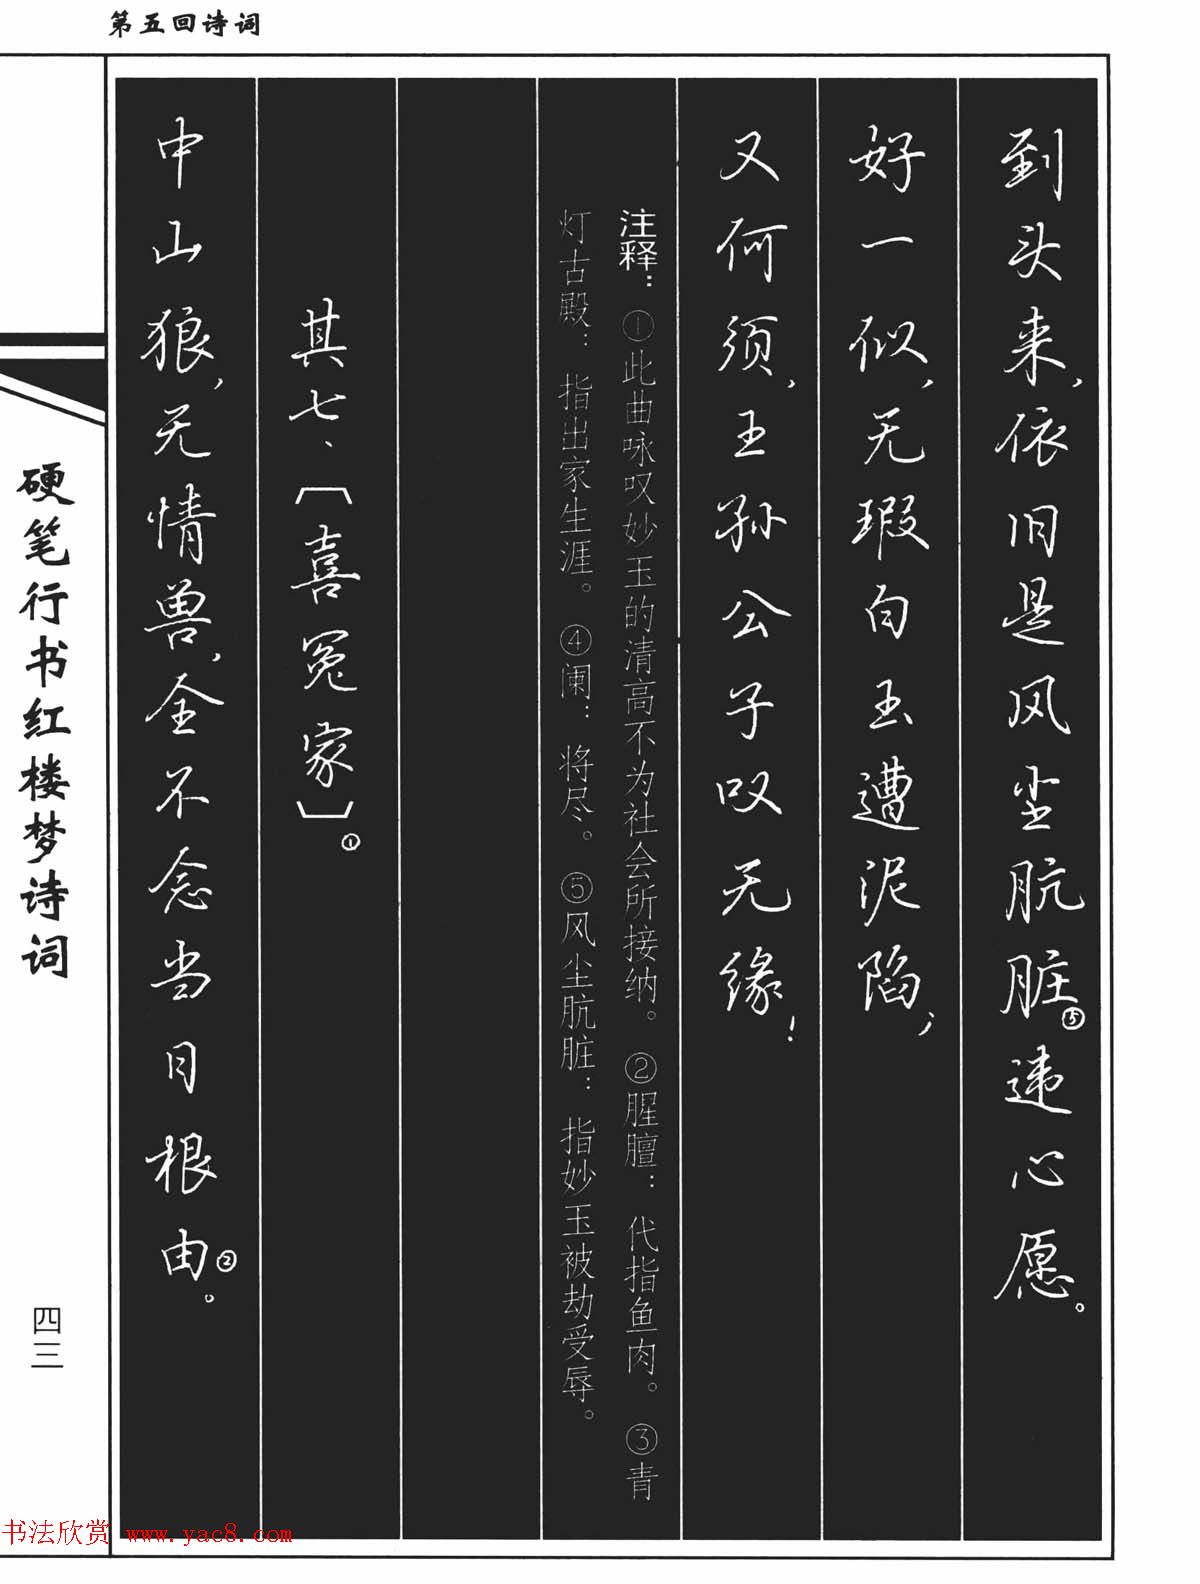 第五回诗词
到头来，依旧是风尘肮脏⑤违心愿。
好一似，无瑕白玉遭泥陷；
又何须，王孙公子叹无缘！
注释：①此曲咏叹妙玉的清高不为社会所接纳。②腥膻：代指鱼肉。③青
灯古殿：指出家生涯。④阑：将尽。⑤风尘肮脏：指妙玉被劫受辱。
其七、〔喜冤家〕①
中山狼，无情兽，全不念当日根由②。
硬笔行书红楼梦诗词
四三
书法欣赏 www.yac8.com